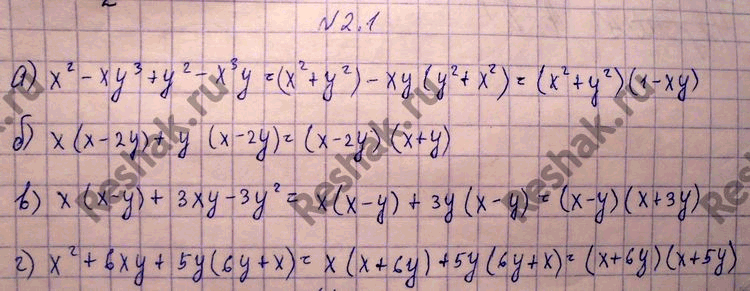 №2.1
а) x² - xy³ + y² - x³y = (x² + y²) - xy (y² + x²) = (x² + y²) (1 - xy)
б) x (x - 2y) + y (x - 2y) = (x - 2y) (x + y)
в) x (x - y) + 3xy - 3y² = x(x - y) + 3y (x - y) = (x - y) (x + 3y)
г) x² + 6xy + 5y(6y + x) = x (x + 6y) + 5y (6y + x) = (x + 6y) (x + 5y)
Reshak.ru
Reshak.ru
Reshak.ru